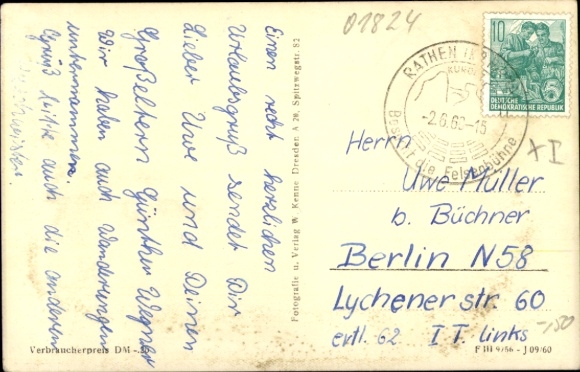 01824
Einen recht herzlichen
Urlaubsgruß sendet Dir
Lieber Uwe und Deinen
Großeltern Günther Wegner
Wir haben auch Wanderungen
unternommen.
Grüß bitte auch die anderen
Fotografie u. Verlag W. Kenne Dresden A 28, Spitzwegstr. 82
10
DEUTSCHE
DEMOKRATISCHE REPUBLIK
RATHEN
-2.6.62-15
die Felsenbühne
XI
Herrn
Uwe Müller
b. Büchner
Berlin N58
Lychener str. 60
ertl. 62 II links
-,50
Verbraucherpreis DM -.25
F III 9/56 - J 09/60